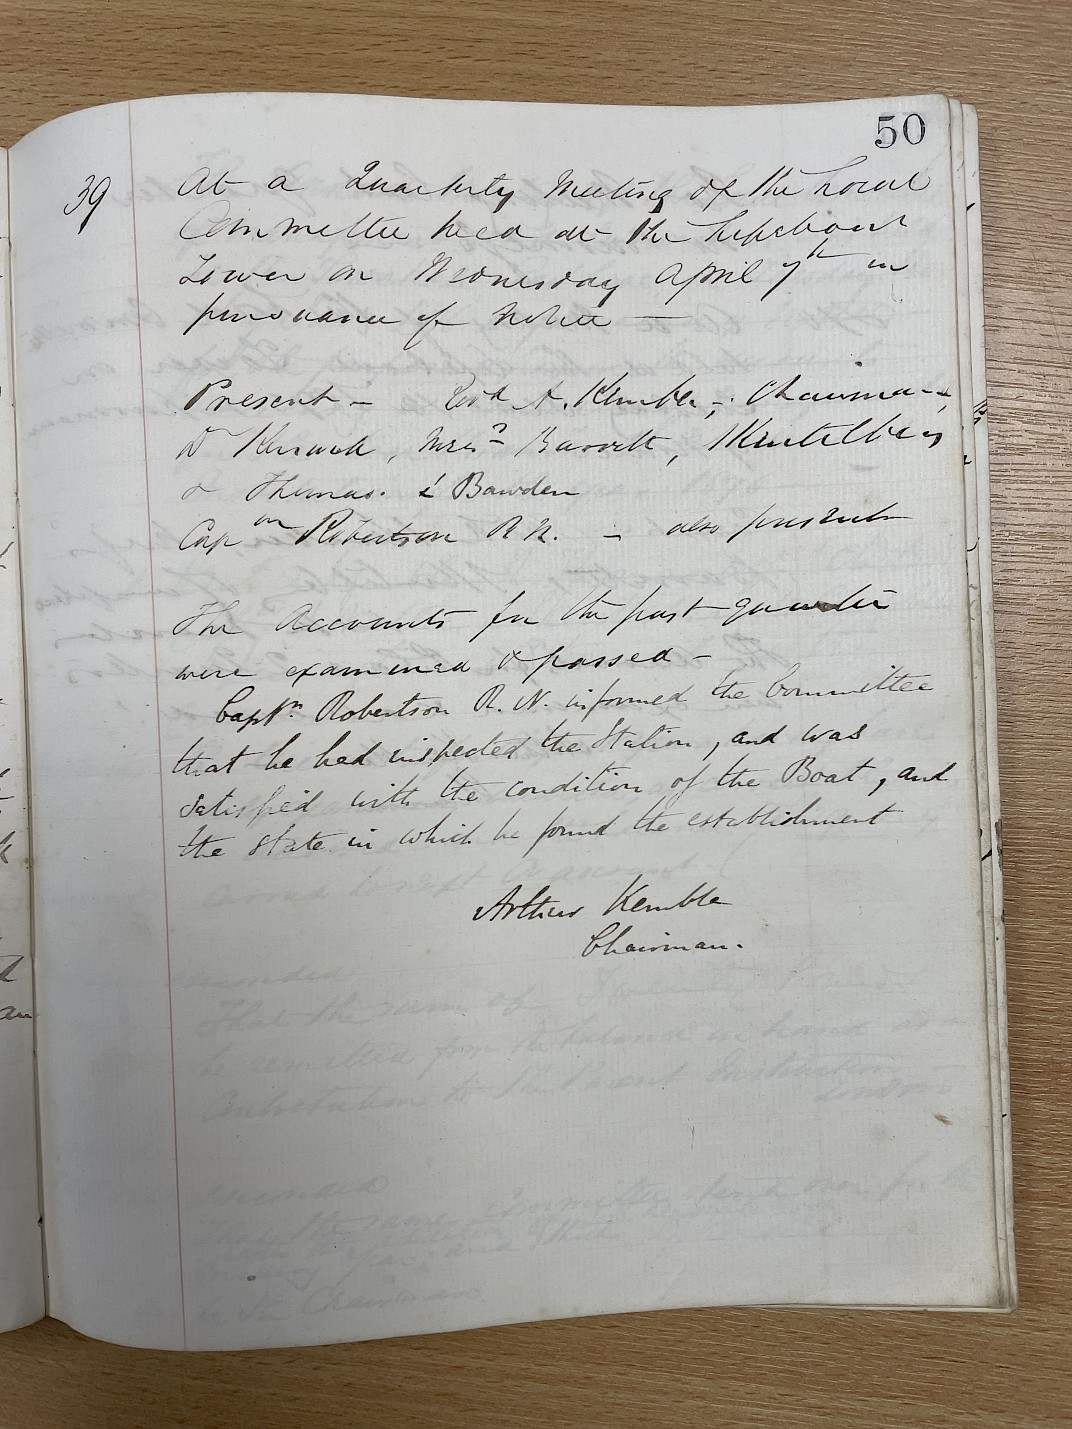 50
39
At a Quarterly Meeting of the Local
Committee held at the Lifeboat
Tower on Wednesday April 7th in
pursuance of Notice —
Present — Revd A. Kemble, Chairman,
Dr , Messrs Barrett,
& Thomas. & Bawden
Capn Robertson R.N. — also present
The Accounts for the past quarter
were examined & passed —
Captn. Robertson R.N. informed the Committee
that he had inspected the Station, and was
satisfied with the condition of the Boat, and
the state in which he found the establishment
Arthur Kemble
Chairman.